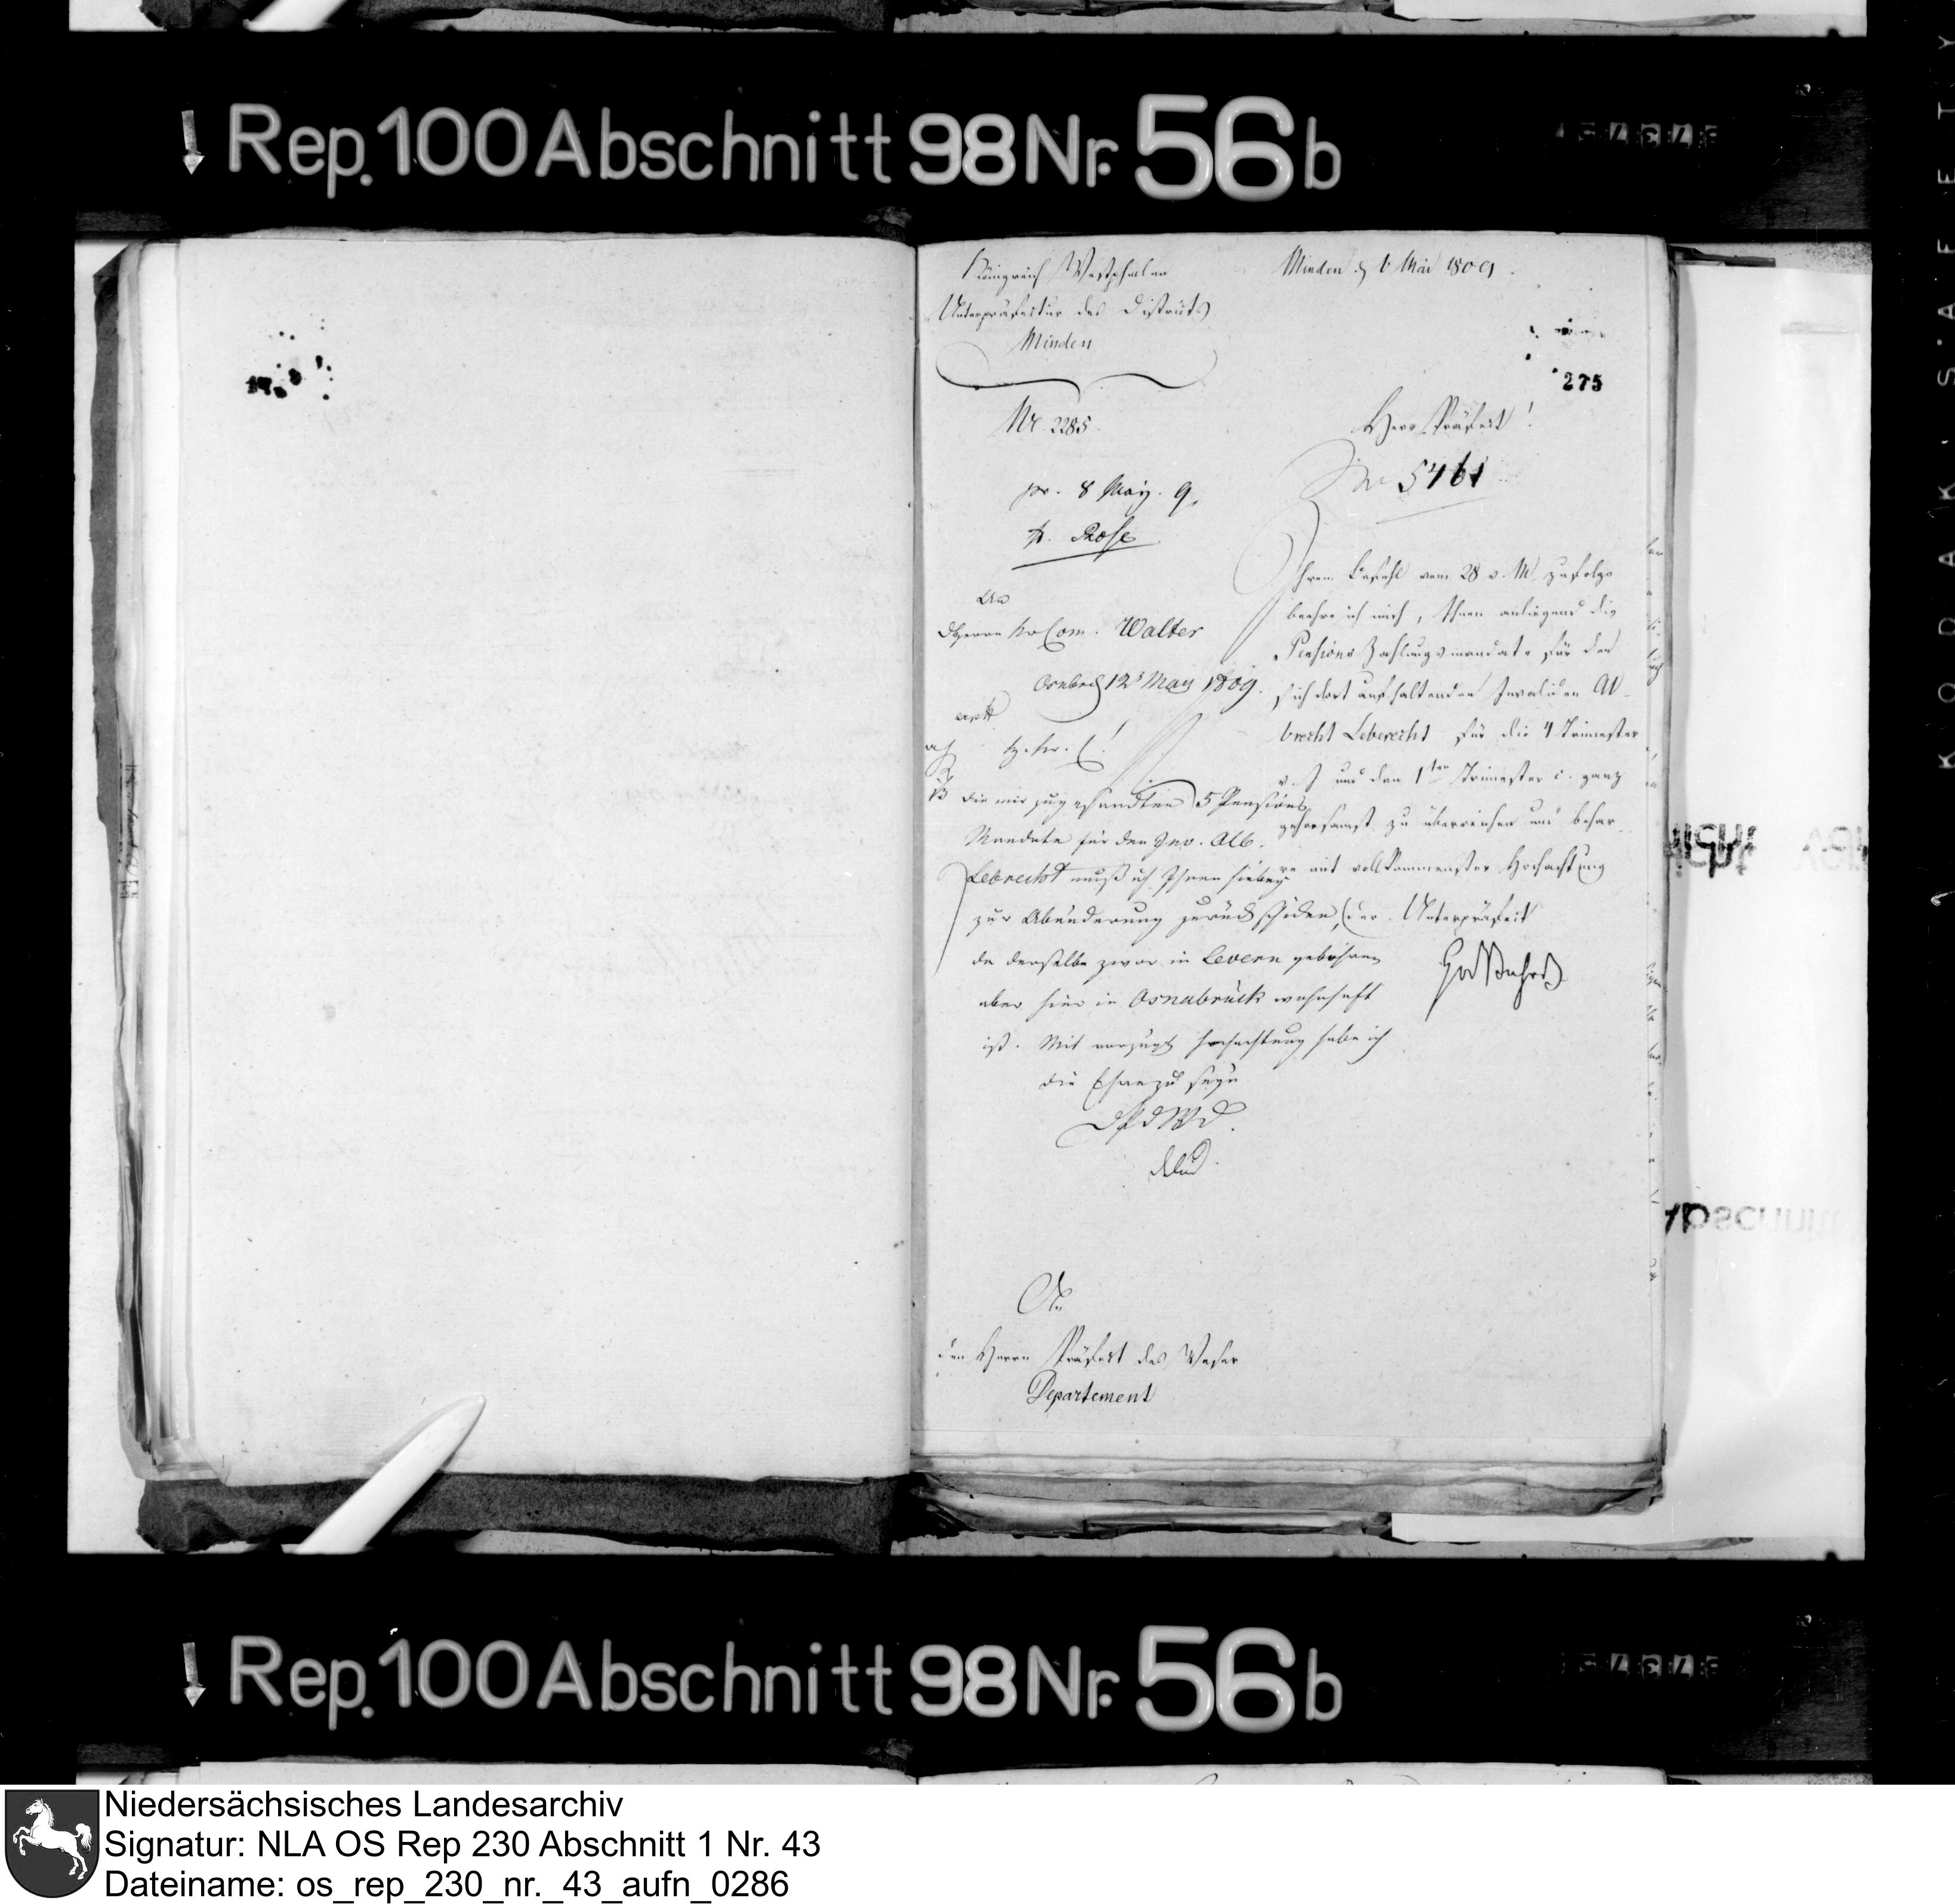 Rep. 100 Abschnitt 98 Nr. 56 b
Königreich Westphalen
Unterpräfectur des Districts
Minden
Minden d. 6 Mai 1809.
275
Nr. 2285.
Herr Präfect!
Nr 5461
pr. 8 May. 9.
Rose
Ihrem Befehl vom 28 v. M. zufolge
beehre ich mich, Ihnen anliegend die
Pensions Zahlungsmandate für den
sich dort aufhaltenden Invaliden Al-
brecht Leberecht für die 4 Trimester
v. J. und den 1ten Trimester c. ganz
gehorsamst zu überreichen und behar-
re mit vollkommenster Hochachtung
der Unterpräfect
An
d Herrn Com. Walter
Osnabrück 12 May 1809.
die mir zugesandten 5 Pensions
Mandate für den Inv. Alb.
Lebrecht muß ich Ihnen hiebey
zur Abänderung zurück schicken,
da derselbe zwar in Levern gebohren
aber hier in Osnabrück wohnhaft
ist. Mit vorzügl. Hochachtung habe ich
die Ehre zu seyn
D P d W D.
An
den Herrn Präfect des Weser
Departement
Rep. 100 Abschnitt 98 Nr. 56 b
Niedersächsisches Landesarchiv
Signatur: NLA OS Rep 230 Abschnitt 1 Nr. 43
Dateiname: os_rep_230_nr._43_aufn_0286